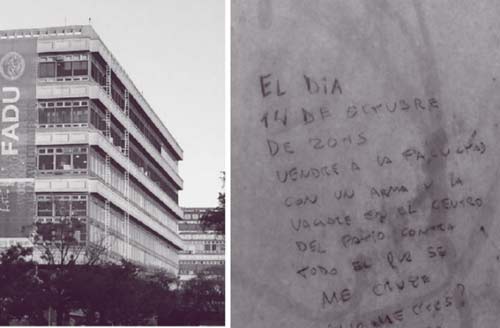 FADU
EL DIA
14 DE OCTUBRE
DE 2015
VENDRE A LA FACULTAD
CON UN ARMA Y LA
VACIARE EN EL CENTRO
DEL PATIO CONTRA
TODO EL QUE SE
ME CRUCE